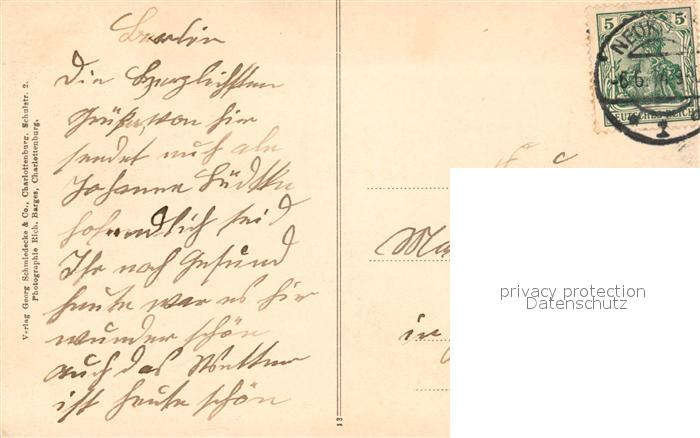 Berlin
Die Herzlichsten
Grüße, von hier
sendet euch alle
Johanna
hoffendlich seid
Ihr noch Gesund
heute war es hir
wunder schön
auch das Wetter
ist heute schön
Verlag Georg Schmiedecke & Co., Charlottenburg, Schulstr. 2.
Photographie Rich. Barges, Charlottenburg.
13
5 5
DEUTSCHES REICH
NEUK
6.6.
1
in
privacy protection
Datenschutz